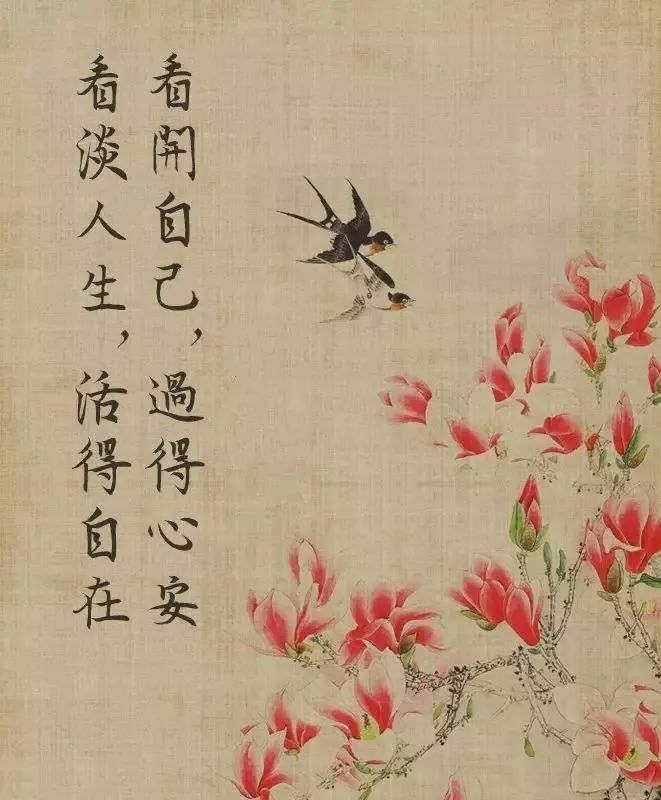 看開自己，過得心安
看淡人生，活得自在